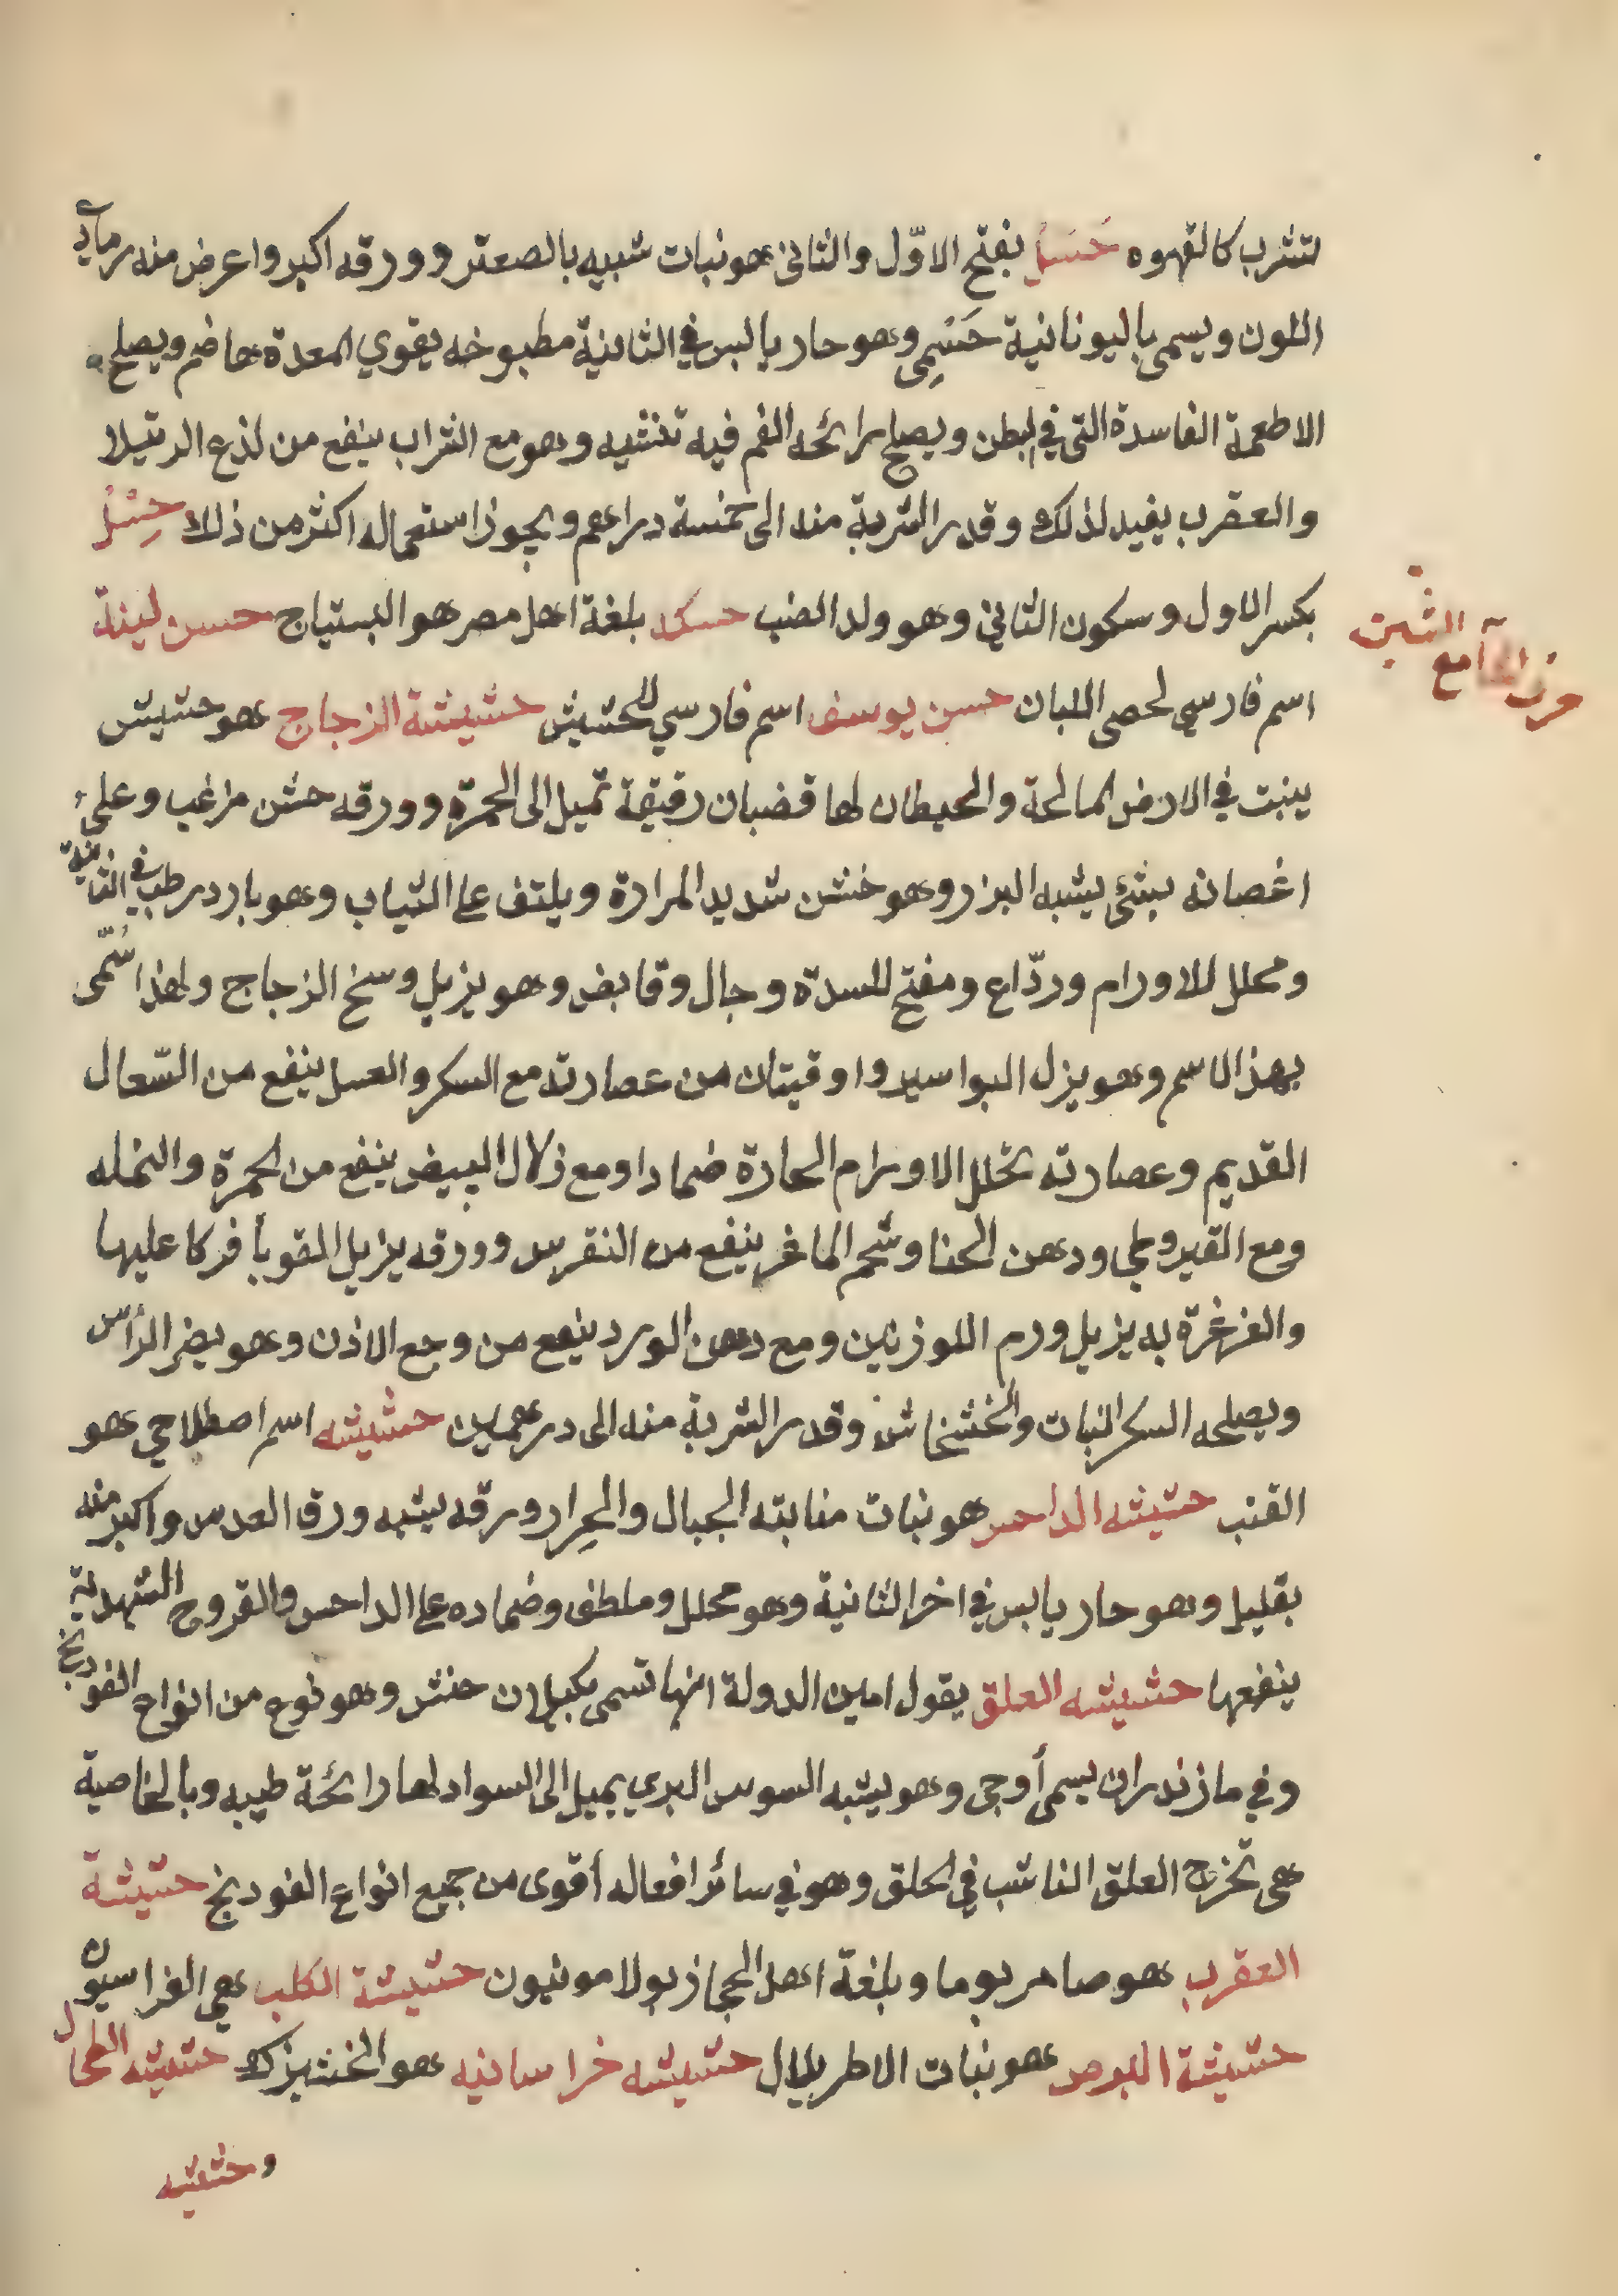 لتشرب كالقهوه حَسَلْ بفتح الاوّل والثانى هو نبات شبيه بالصعتر وورقه اكبر واعرض منه رمادي
اللون ويسمى باليونانية حَسَمِى وهو حار يابس في الثانية مطبوخه يقوي المعدة هاضم ويصلح
الاطعمة الفاسدة التى في البطن ويصلح رائحه الفم فيه تنشيه وهو مع الشراب ينفع من لذع الرتيلا
والعقرب يفيد لذلك وقدر الشربة منه الى خمسة دراهم ويجوز استعماله اكثر من ذلك حِسْلْ
بكسر الاول وسكون الثاني وهو ولد الضب حسكه بلغة اهل مصر هو البستياج حسن لبنة
حرف الحآ مع الشين
اسم فارسي لحصى اللبان حسن يوسف اسم فارسي للحشيش حشيشة الزجاج هو حشيش
ينبت في الارض المالحة والحيطان لها قضبان رقيقة تميل الى الحمرة وورقه خشن مزغب وعلى
اغصانه شئ يشبه البزر وهو خشن شديد المرارة ويلتف على الثياب وهو بارد رطب في الثانية
ومحلل للاورام وردّاع ومفتح للسدة وجال وقابض وهو يزيل وسخ الزجاج ولهذا سُمّى
بهذا الاسم وهو يزل البواسير واوقيتان من عصارته مع السكر والعسل ينفع من السّعال
القديم وعصارته تحلل الاورام الحادة ضمادا ومع زلال البيض ينفع من الحمرة والنمله
ومع القيروطي ودهن الحنا وشحم الماغز ينفع من النقرس وورقه يزيل القوبأ فركا عليها
والغرغرة به يزيل ورم اللوزتين ومع دهن الورد ينفع من وجع الاذن وهو يضر الرأس
ويصلحه السكر النبات والخشخاش وقدر الشربة منه الى درهمين حشيشه اسم اصطلاحي هو
القنب حشيشه الداحس هو نبات منابته الجبال والحِرار ورقه يشبه ورق العدس واكبر منه
بقليل وهو حار يابس في اخر الثانية وهو محلل وملطف وضماده على الداحس والقروح الشهدية
ينفعها حشيشه العلق يقول امين الدولة انها تسمى بكيلان خنش وهو نوع من انواع الفودنج
وفي مازندران يسمى أوجى وهو يشبه السوس البري يميل الى السواد لها رائحة طيبه وبالخاصية
هى تخرج العلق الناشب في الحلق وهو في سائر افعاله أقوى من جميع انواع الفودنج حشيشة
العقرب هو صامريوما وبلغة اهل الحجاز بولامونيون حشيشة الكلب هي الفراسيون
حشيشة البرص هو نبات الاطريلال حشيشه خراسانيه هو الخشيزك حشيشه الطحال
وحشيشه